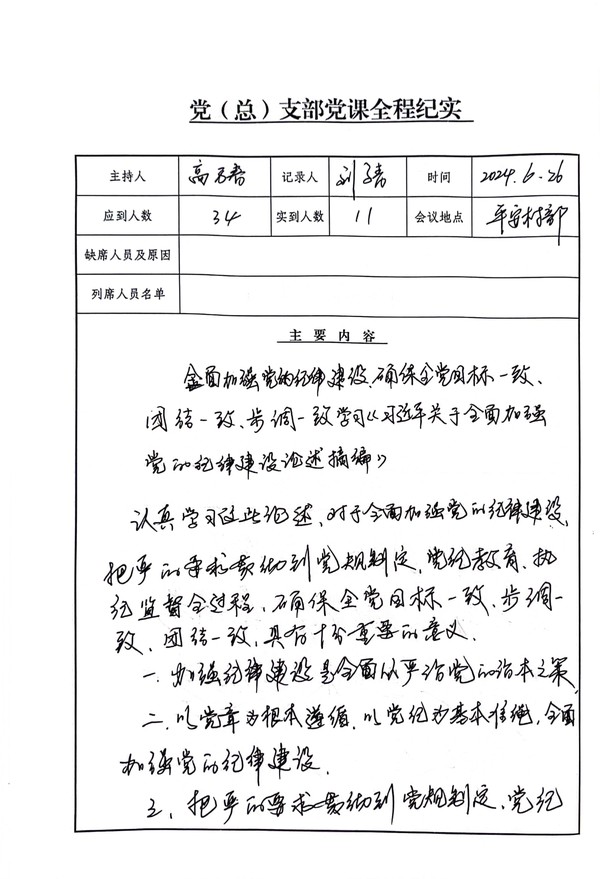 党（总）支部党课全程纪实
主持人 高 春 记录人 刘 时间 2024.6.26
应到人数 34 实到人数 11 会议地点 平安村部
缺席人员及原因
列席人员名单
主要内容
全面加强党的纪律建设、确保全党目标一致、
团结一致、步调一致学习《习近平关于全面加强
党的纪律建设论述摘编》
认真学习这些论述、对于全面加强党的纪律建设、
把严的要求贯彻到党规制定、党纪教育、执
纪监督全过程、确保全党目标一致、步调一
致、团结一致，具有十分重要的意义.
一. 加强纪律建设是全面从严治党的治本之策
二. 以党章为根本遵循，以党纪为基本准绳，全面
加强党的纪律建设.
三、把严的要求贯彻到党规制定、党纪